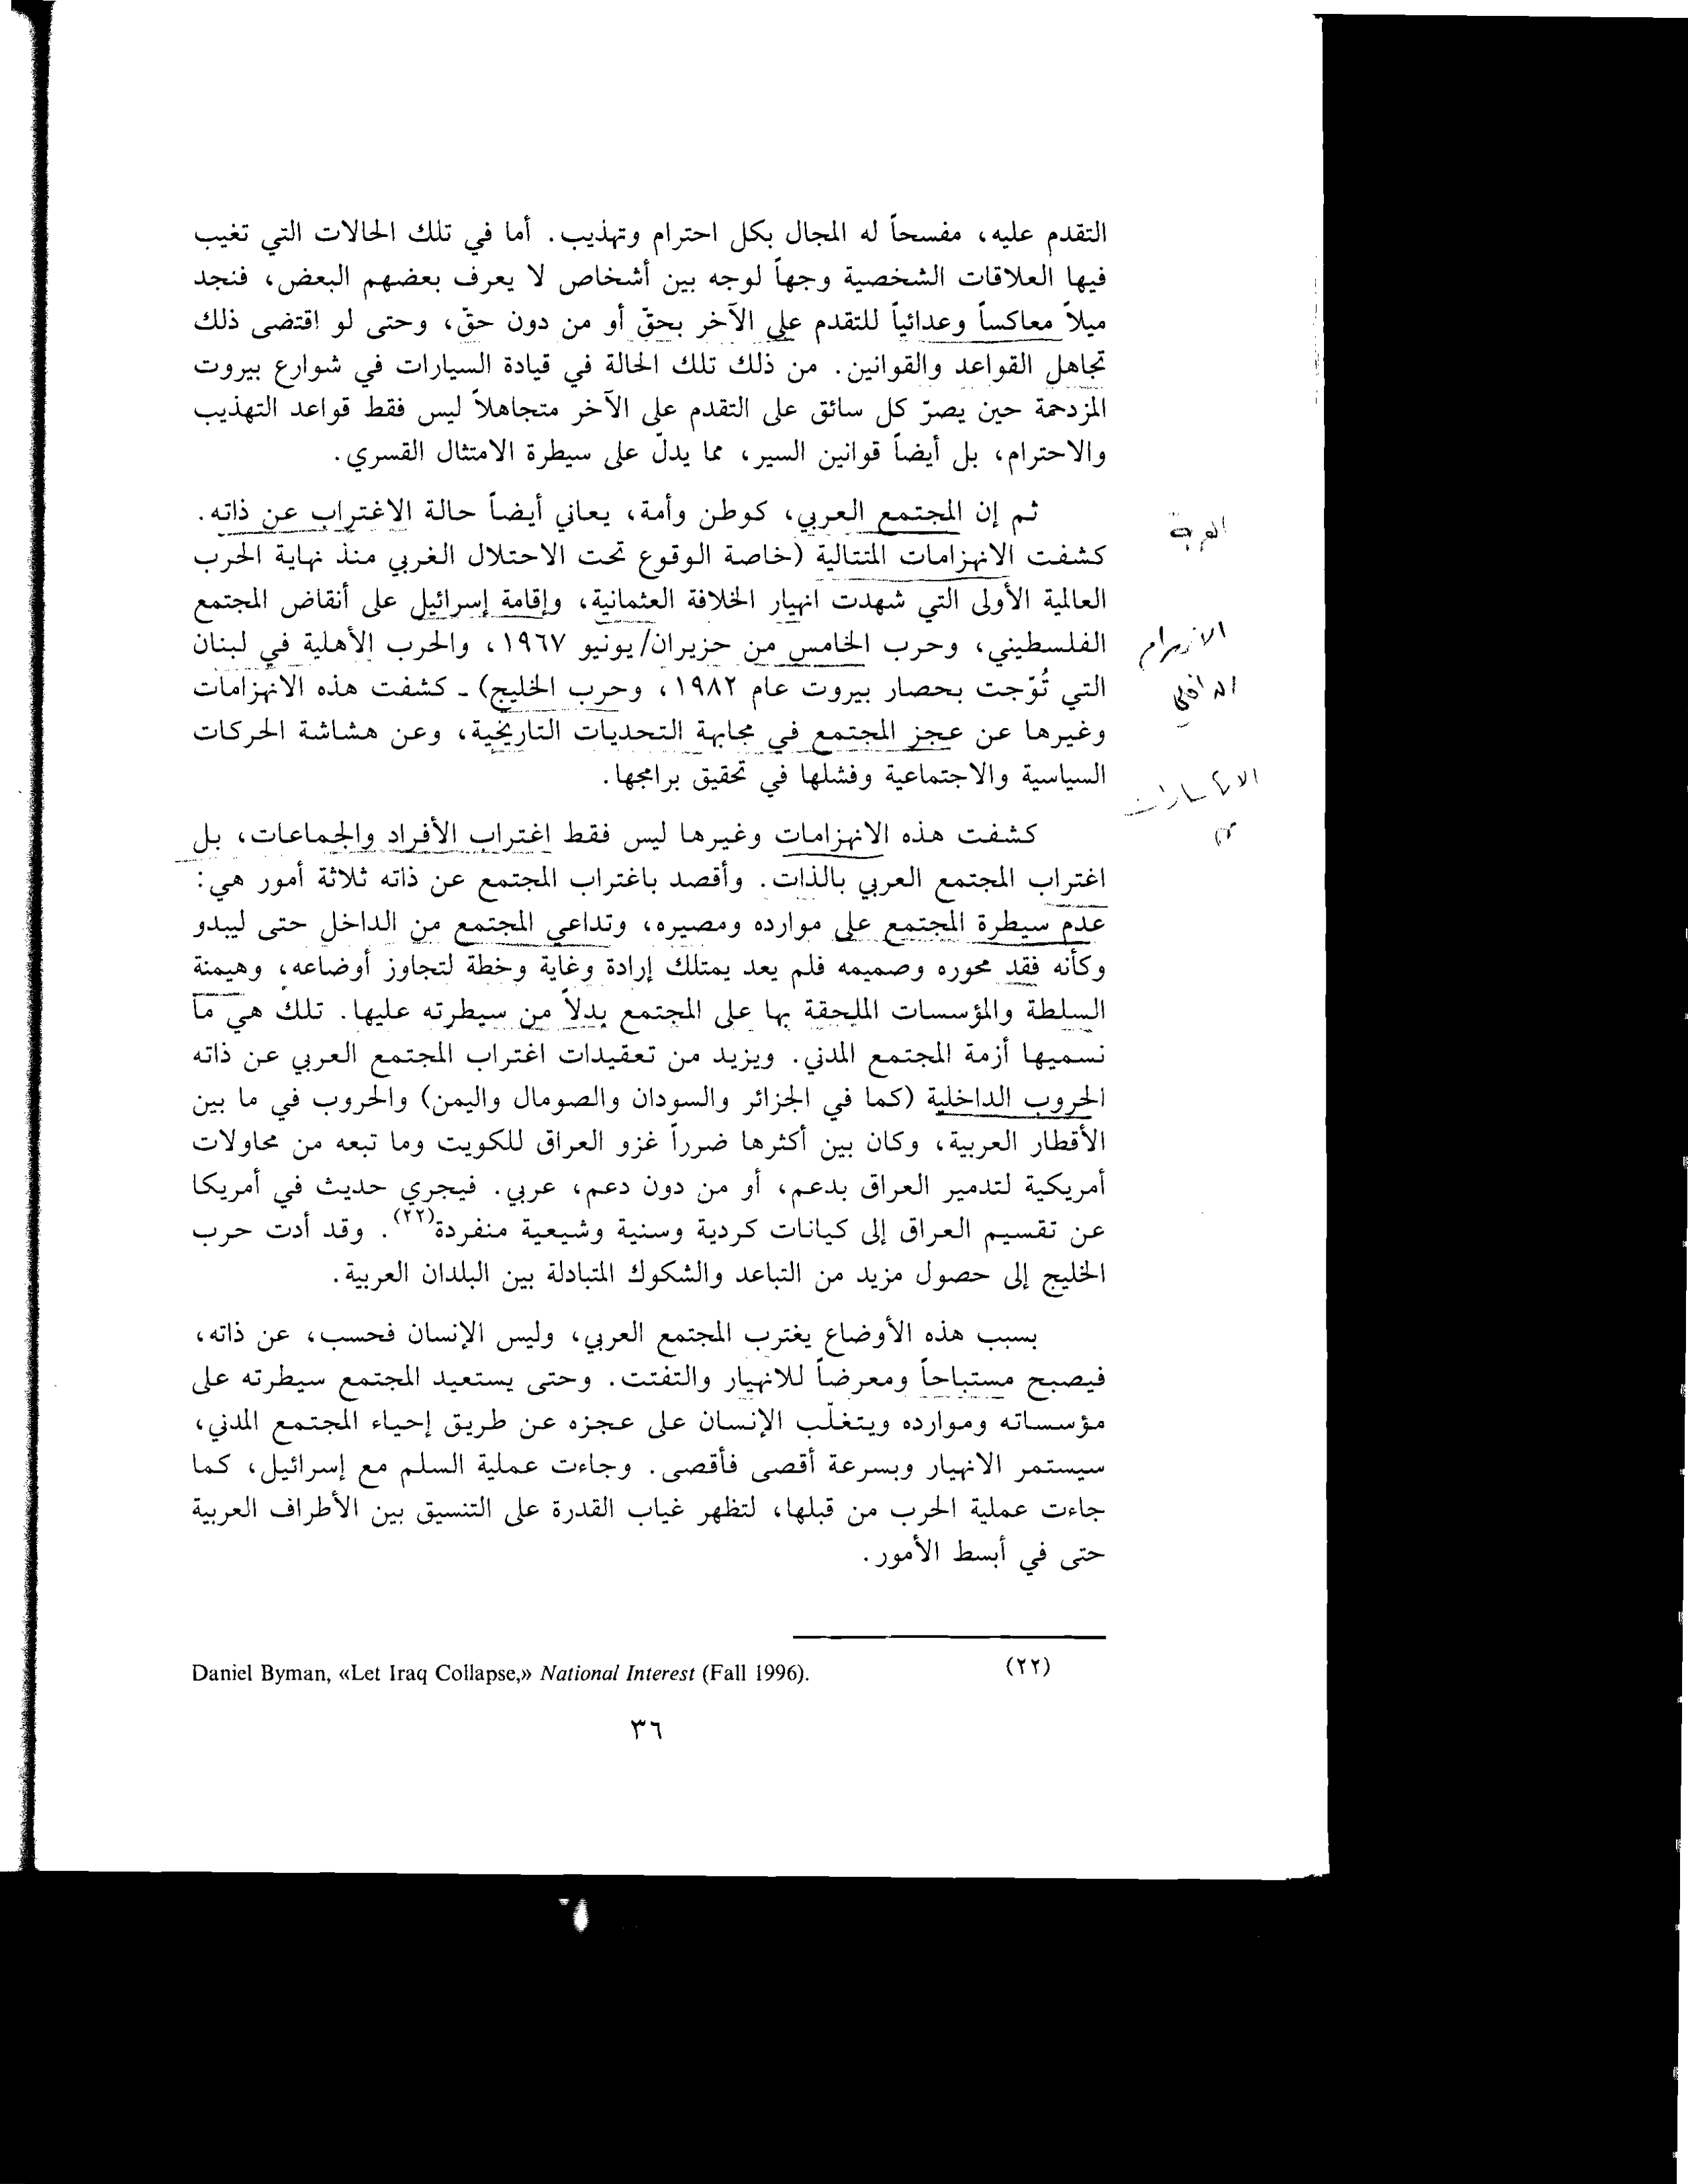 التقدم عليه، مفسحاً له المجال بكل احترام وتهذيب. أما في تلك الحالات التي تغيب
فيها العلاقات الشخصية وجهاً لوجه بين أشخاص لا يعرف بعضهم البعض، فنجد
ميلاً معاكساً وعدائياً للتقدم على الآخر بحقّ أو من دون حقّ، وحتى لو اقتضى ذلك
تجاهل القواعد والقوانين. من ذلك تلك الحالة في قيادة السيارات في شوارع بيروت
المزدحمة حين يصرّ كل سائق على التقدم على الآخر متجاهلاً ليس فقط قواعد التهذيب
والاحترام، بل أيضاً قوانين السير، مما يدلّ على سيطرة الامتثال القسري.
ثم إن المجتمع العربي، كوطن وأمة، يعاني أيضاً حالة الاغتراب عن ذاته.
كشفت الانهزامات المتتالية (خاصة الوقوع تحت الاحتلال الغربي منذ نهاية الحرب
العالمية الأولى التي شهدت انهيار الخلافة العثمانية، وإقامة إسرائيل على أنقاض المجتمع
الفلسطيني، وحرب الخامس من حزيران/يونيو ١٩٦٧، والحرب الأهلية في لبنان
التي تُوّجت بحصار بيروت عام ١٩٨٢، وحرب الخليج) ـ كشفت هذه الانهزامات
وغيرها عن عجز المجتمع في مجابهة التحديات التاريخية، وعن هشاشة الحركات
السياسية والاجتماعية وفشلها في تحقيق برامجها.
كشفت هذه الانهزامات وغيرها ليس فقط اغتراب الأفراد والجماعات، بل
اغتراب المجتمع العربي بالذات. وأقصد باغتراب المجتمع عن ذاته ثلاثة أمور هي:
عدم سيطرة المجتمع على موارده ومصيره، وتداعي المجتمع من الداخل حتى ليبدو
وكأنه فقد محوره وصميمه فلم يعد يمتلك إرادة وغاية وخطة لتجاوز أوضاعه، وهيمنة
السلطة والمؤسسات الملحقة بها على المجتمع بدلاً من سيطرته عليها. تلك هي ما
نسميها أزمة المجتمع المدني. ويزيد من تعقيدات اغتراب المجتمع العربي عن ذاته
الحروب الداخلية (كما في الجزائر والسودان والصومال واليمن) والحروب في ما بين
الأقطار العربية، وكان بين أكثرها ضرراً غزو العراق للكويت وما تبعه من محاولات
أمريكية لتدمير العراق بدعم، أو من دون دعم، عربي. فيجري حديث في أمريكا
عن تقسيم العراق إلى كيانات كردية وسنية وشيعية منفردة(٢٢). وقد أدت حرب
الخليج إلى حصول مزيد من التباعد والشكوك المتبادلة بين البلدان العربية.
بسبب هذه الأوضاع يغترب المجتمع العربي، وليس الإنسان فحسب، عن ذاته،
فيصبح مستباحاً ومعرضاً للانهيار والتفتت. وحتى يستعيد المجتمع سيطرته على
مؤسساته وموارده ويتغلّب الإنسان على عجزه عن طريق إحياء المجتمع المدني،
سيستمر الانهيار وبسرعة أقصى فأقصى. وجاءت عملية السلم مع إسرائيل، كما
جاءت عملية الحرب من قبلها، لتظهر غياب القدرة على التنسيق بين الأطراف العربية
حتى في أبسط الأمور.
(٢٢) Daniel Byman, «Let Iraq Collapse,» National Interest (Fall 1996).
٣٦